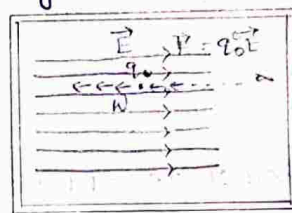 E⃗ F⃗ = q₀E⃗
q₀
W
∞